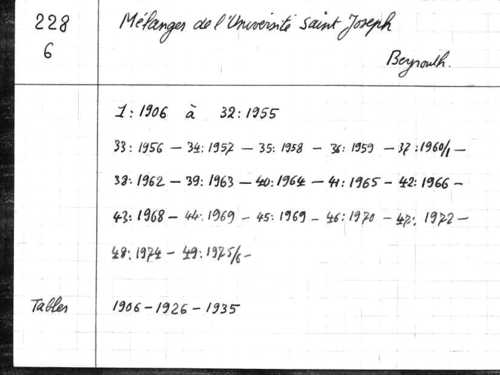 228 Mélanges de l'Université Saint Joseph
6 Beyrouth.
1: 1906 à 32: 1955
33: 1956 – 34: 1957 – 35: 1958 – 36: 1959 – 37: 1960/1 –
38: 1962 – 39: 1963 – 40: 1964 – 41: 1965 – 42: 1966 –
43: 1968 – 44: 1969 – 45: 1969 – 46: 1970 – 47: 1972 –
48: 1974 – 49: 1975/6 –
Tables 1906 – 1926 – 1935